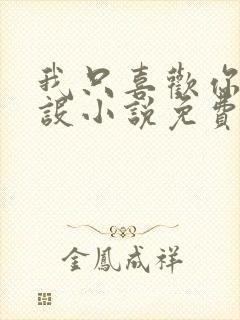 我只喜歡你
設小說免費
金鳳成祥